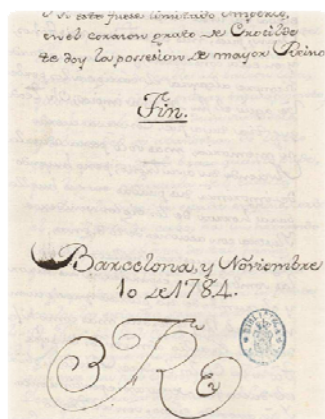 Y si este fuese limitado Imperio,
en el corazon grato de Crotilde
te doy la possesion de mayor Reino
Fin.
Barcelona, y Noviembre
10 de 1784.